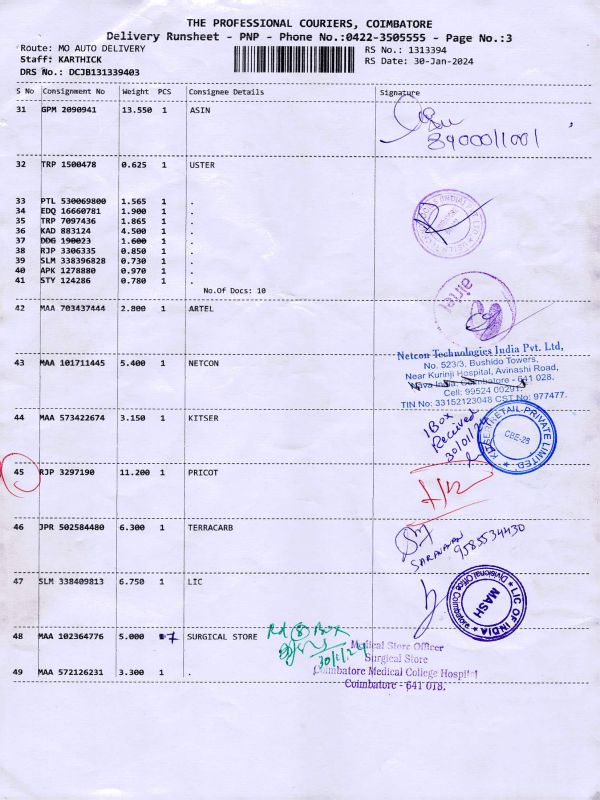 THE PROFESSIONAL COURIERS, COIMBATORE
Delivery Runsheet - PNP - Phone No.:0422-3505555 - Page No.:3
Route: MO AUTO DELIVERY
RS No.: 1313394
Staff: KARTHICK
RS Date: 30-Jan-2024
DRS No.: DCJB131339403
S No Consignment No Weight PCS Consignee Details Signature
31 GPM 2090941 13.550 1 ASIN
32 TRP 1500478 0.625 1 USTER
33 PTL 530069800 1.565 1 .
34 EDQ 16660781 1.900 1 .
35 TRP 7097436 1.865 1 .
36 KAD 883124 4.500 1 .
37 DDG 190023 1.600 1 .
38 RJP 3306335 0.850 1 .
39 SLM 338396828 0.730 1 .
40 APK 1278880 0.970 1 .
41 STY 124286 0.780 1 .
No.Of Docs: 10
airtel
42 MAA 703437444 2.800 1 ARTEL
Netcon Technologies India Pvt. Ltd,
No. 523/3, Bushido Towers,
Near Kurinji Hospital, Avinashi Road,
43 MAA 101711445 5.400 1 NETCON
Nava India, Coimbatore - 641 028.
Cell: 99524 00291
TIN No: 33152123048 CST No: 977477.
44 MAA 573422674 3.150 1 KITSER
1 Box
Received
30/01/24
RETAIL PRIVATE LIMITED
CBE-28
45 RJP 3297190 11.200 1 PRICOT
46 JPR 502584480 6.300 1 TERRACARB
SARAVANAN
9585534430
47 SLM 338409813 6.750 1 LIC
LIC OF INDIA
Divisional Office Coimbatore
MASH
48 MAA 102364776 5.000 7 SURGICAL STORE
Rd 8 Box
30/1/24
Medical Store Officer
Surgical Store
Coimbatore Medical College Hospital
Coimbatore - 641 018.
49 MAA 572126231 3.300 1 .